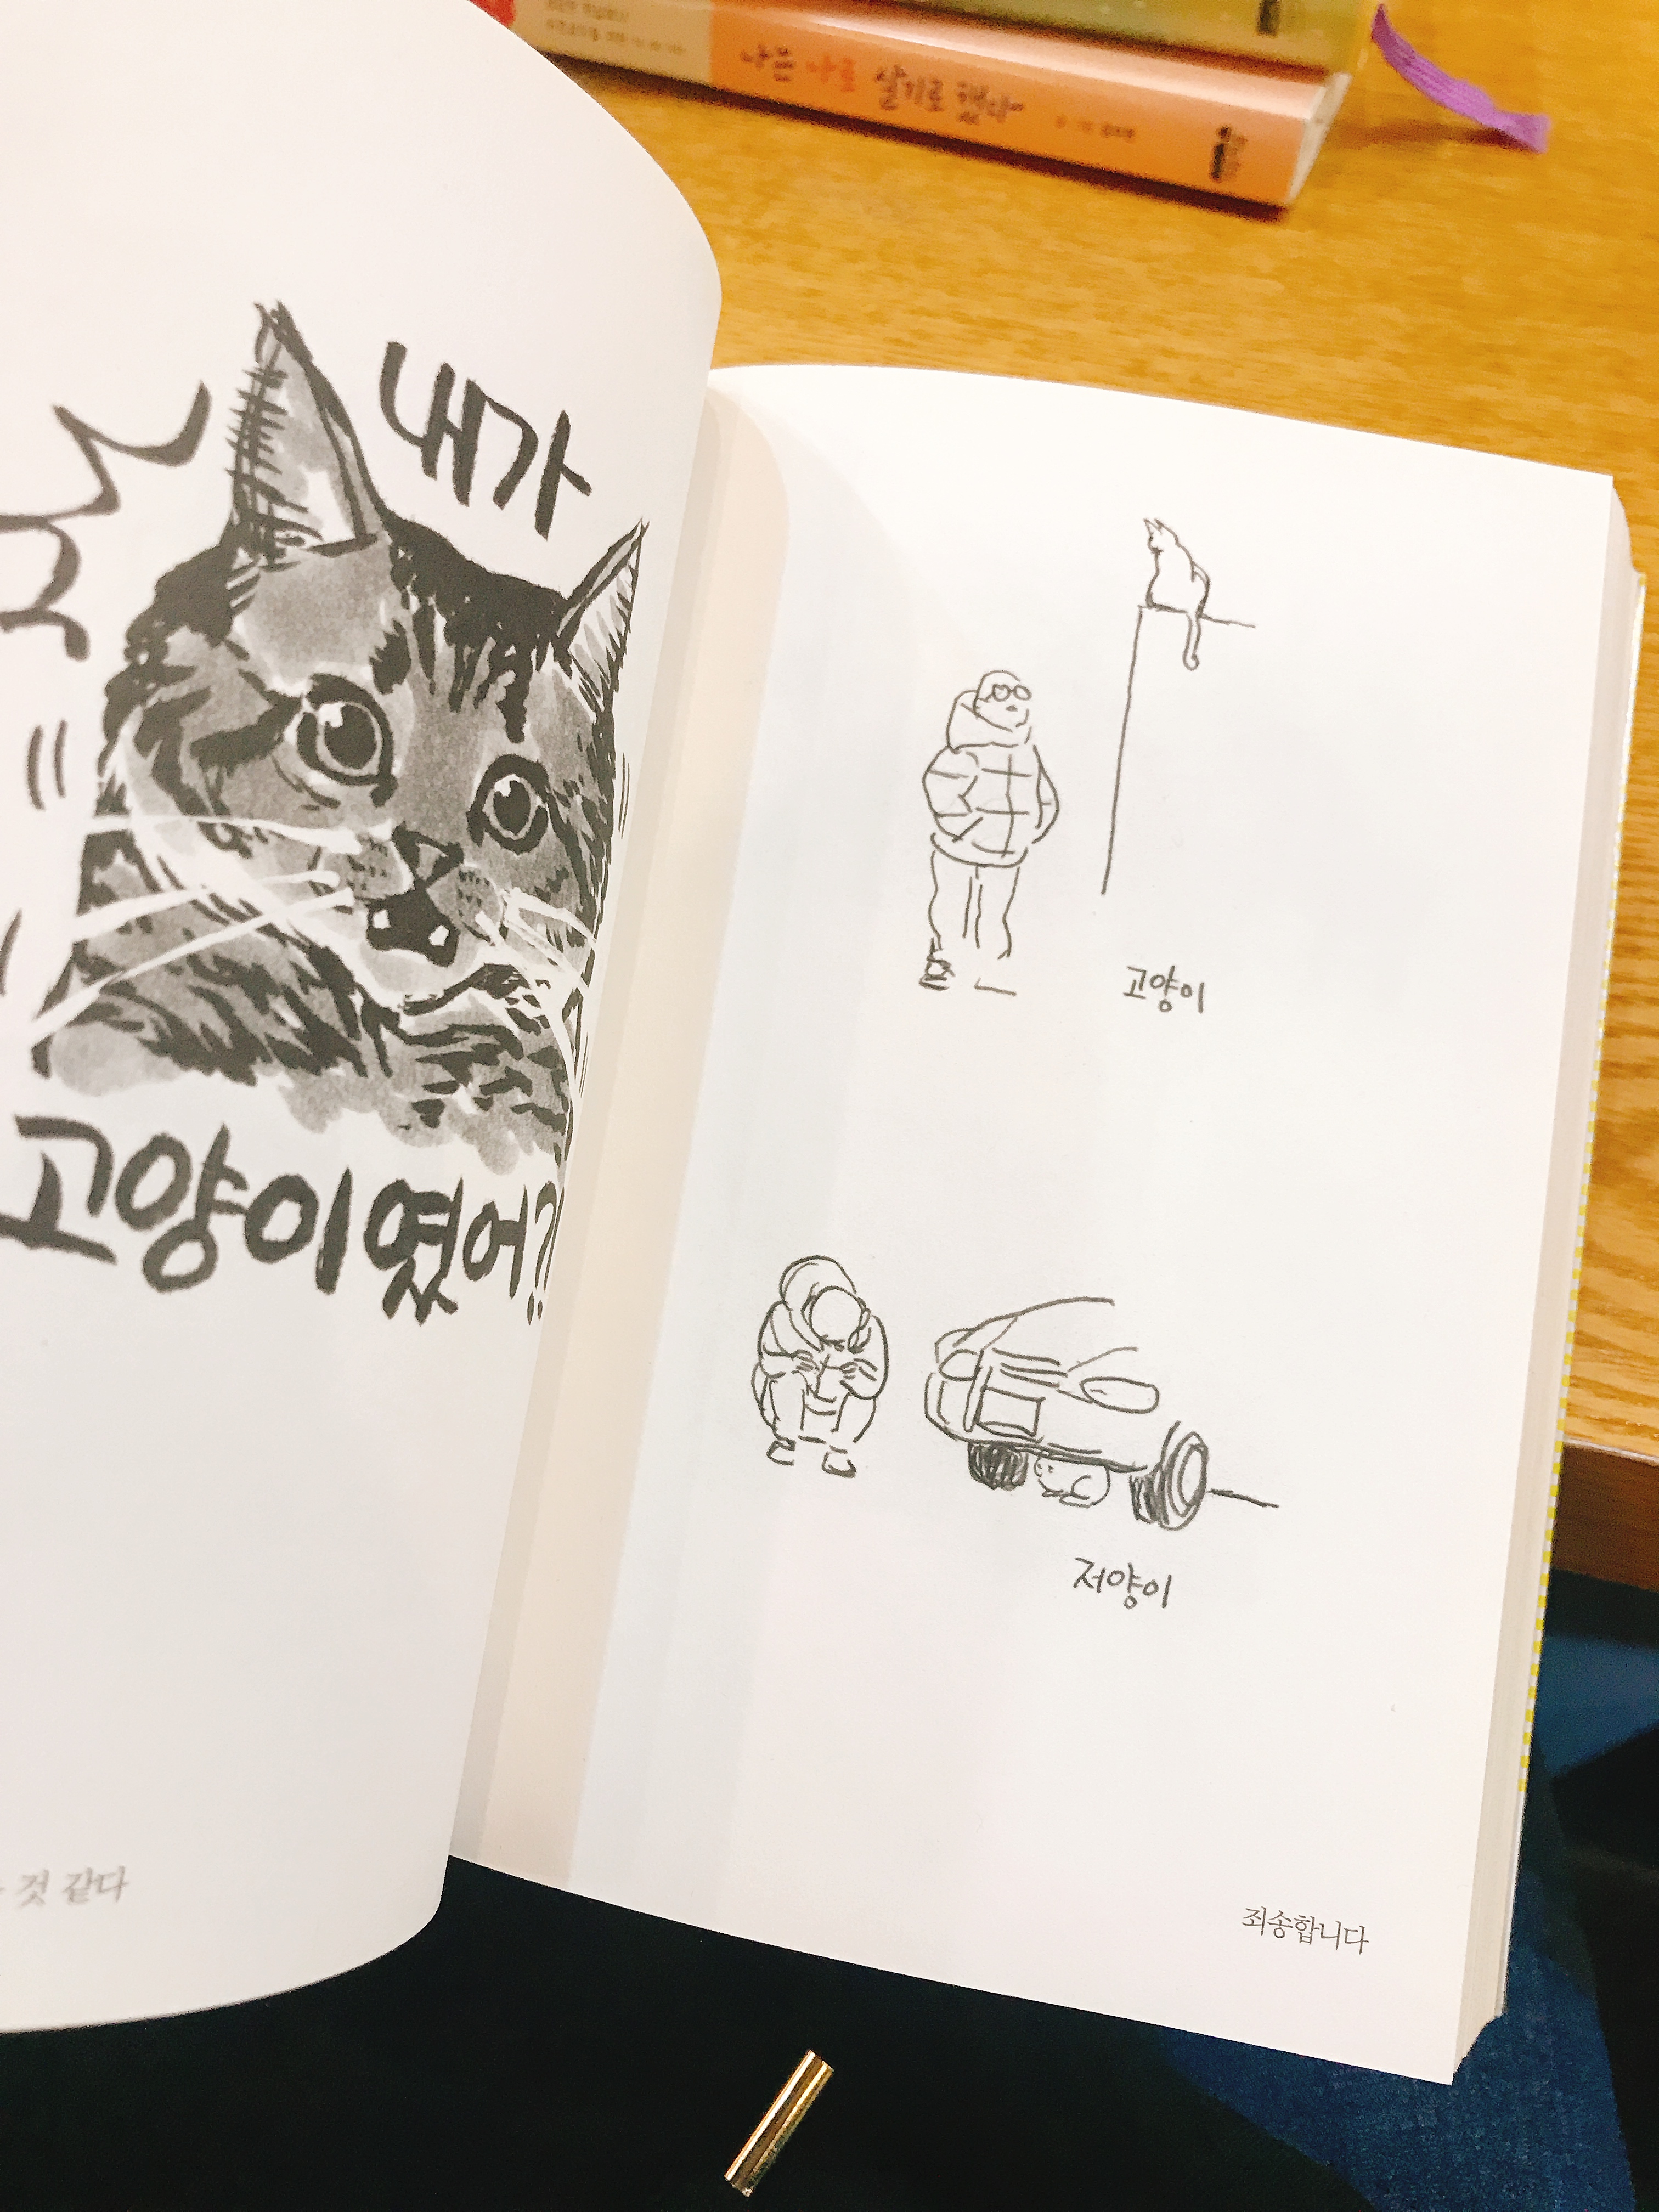 나는 나로 살기로 했다
내가
고양이였어?!
것 같다
고양이
저양이
죄송합니다